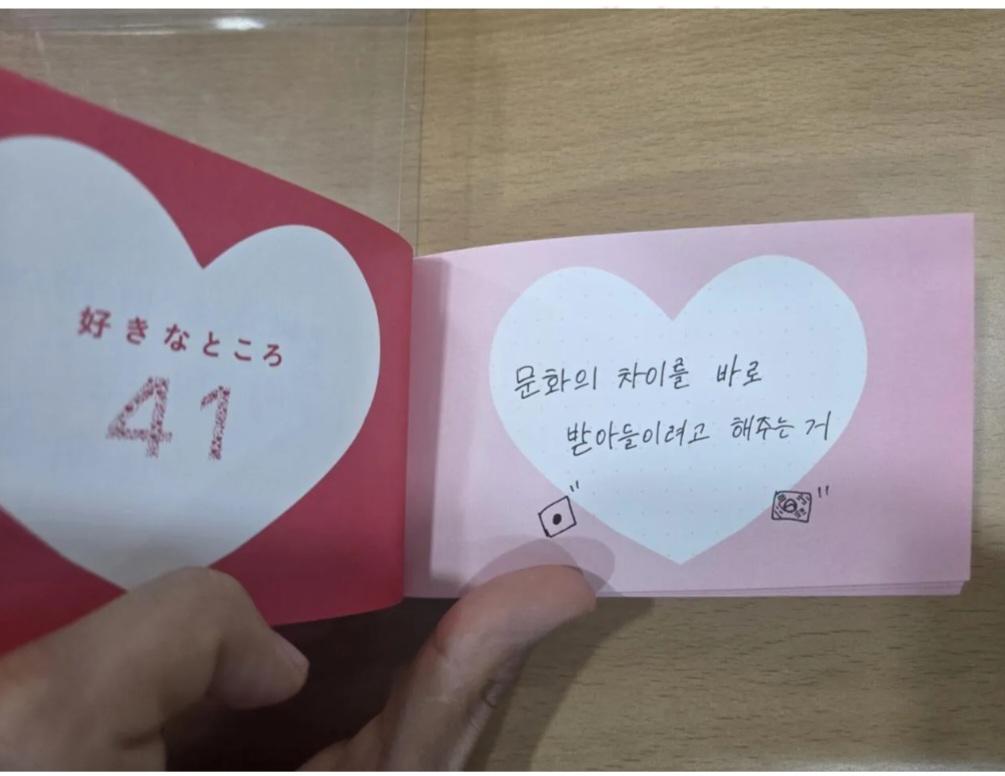 好きなところ
41
문화의 차이를 바로
받아들이려고 해주는 거